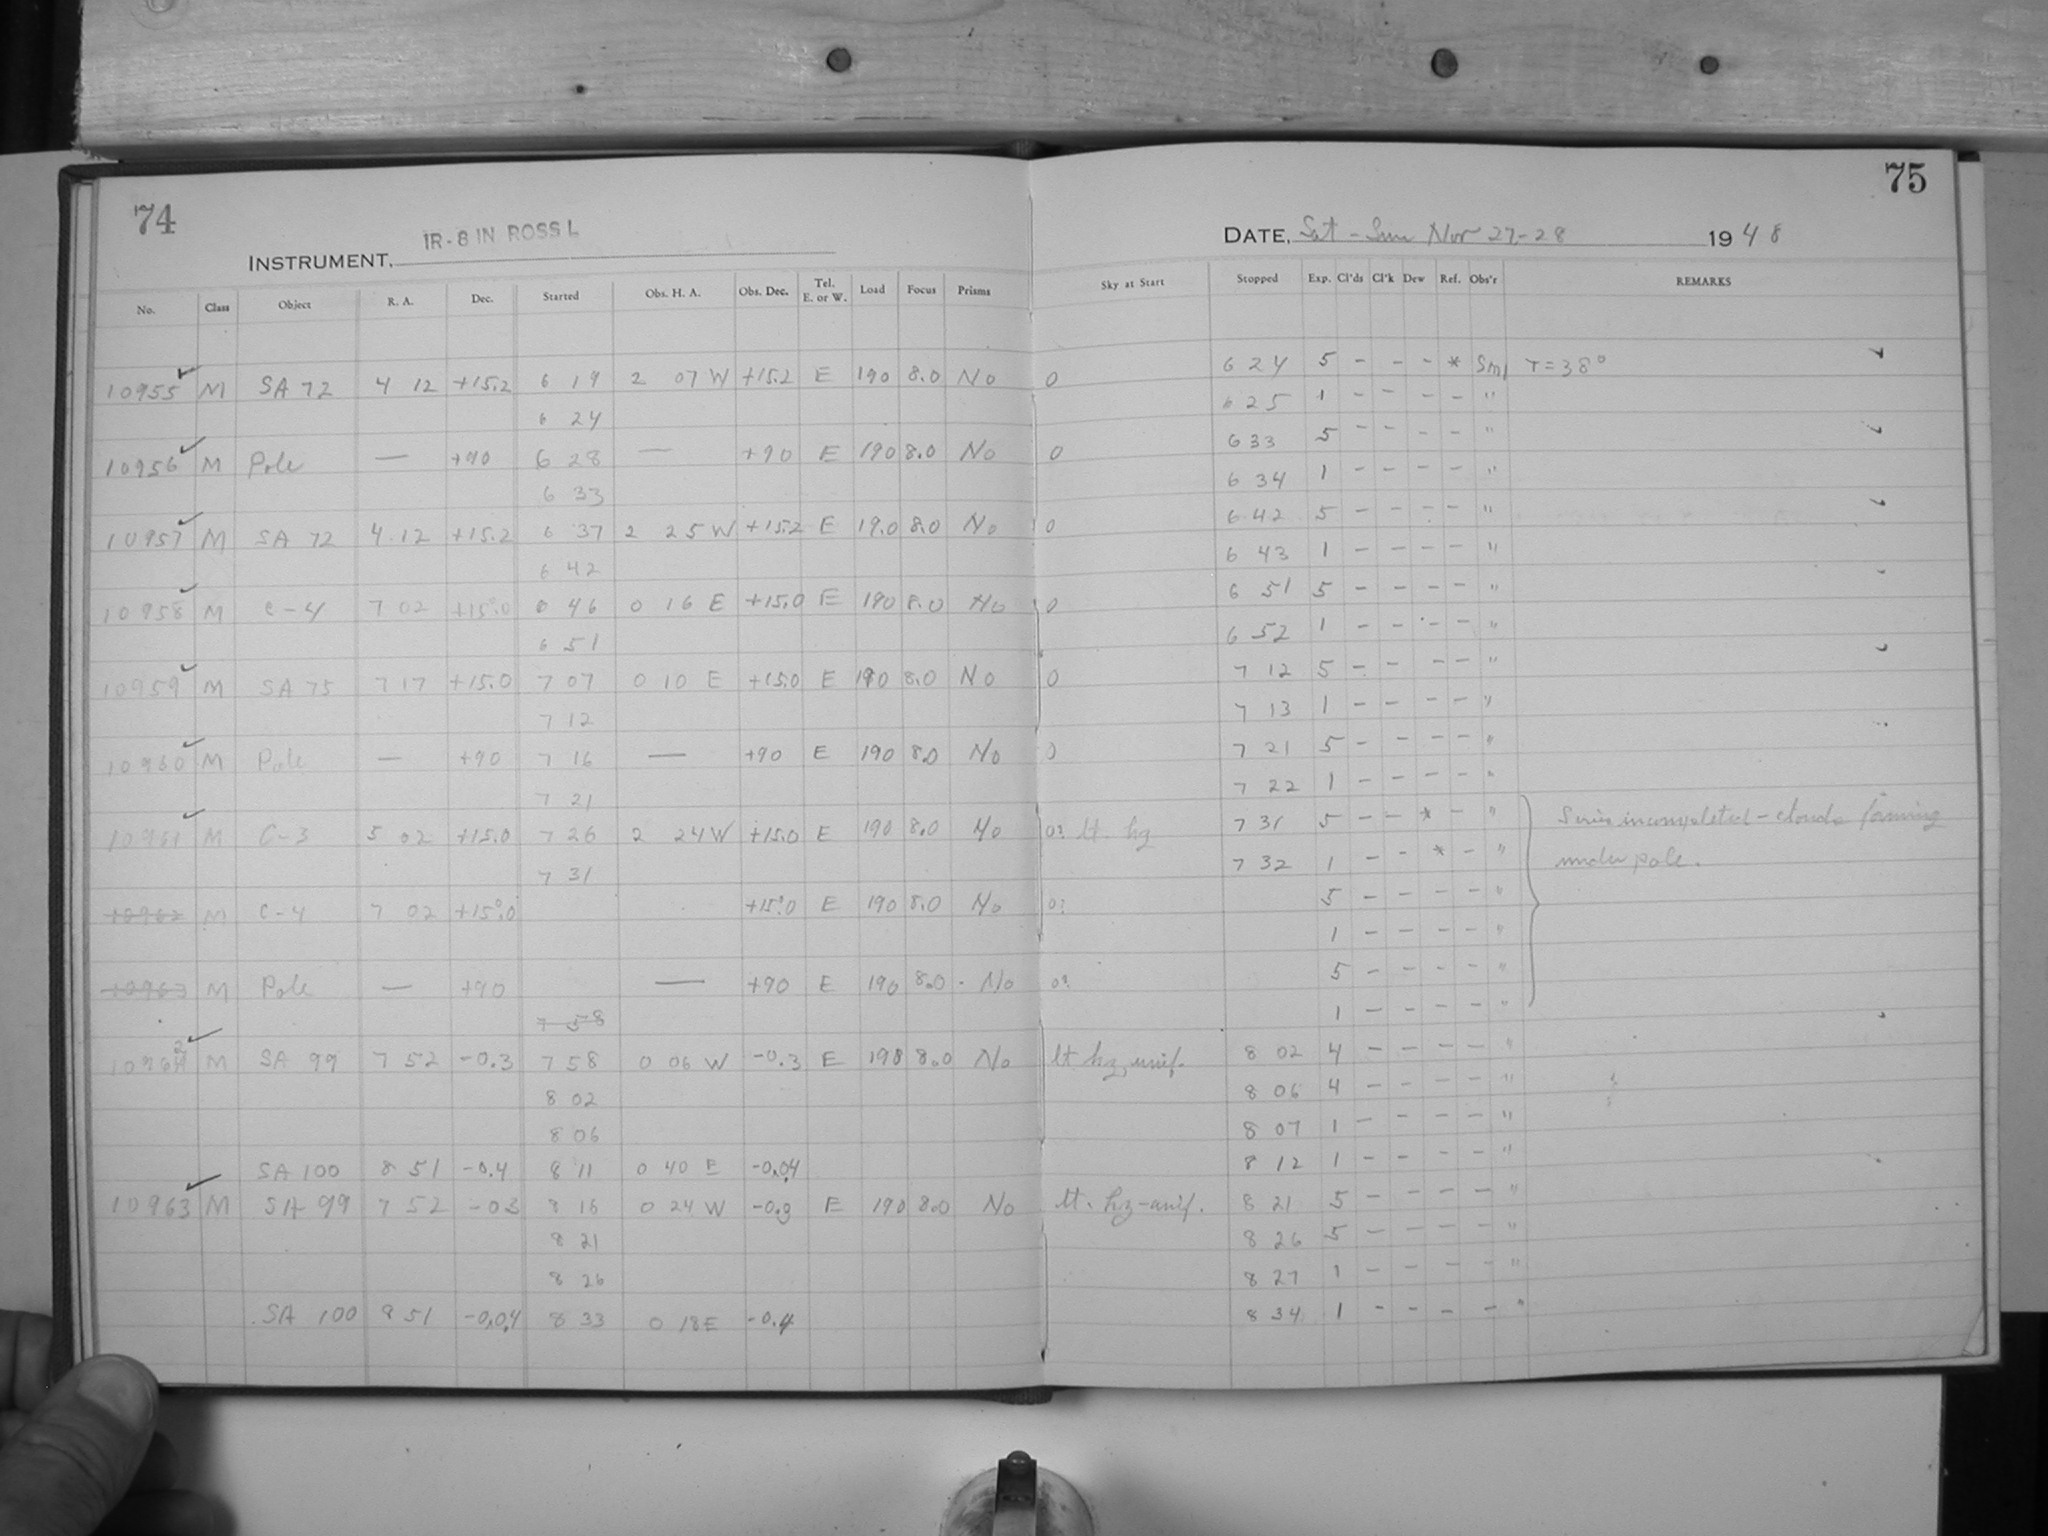 74
75
INSTRUMENT. IR-8 IN ROSS L
DATE, Sat - Sun Nov 27-28 1948
No. Class Object R. A. Dec. Started Obs. H. A. Obs. Dec. Tel. E. or W. Load Focus Prisms Sky at Start Stopped Exp. Cl'ds Cl'k Dew Ref. Obs'r REMARKS
10955 M SA 72 4 12 +15.2 6 19 2 07 W +15.2 E 190 8.0 No 0 6 24 5 - - - * Sm T=38°
6 24 6 25 1 - - - - "
10956 M Pole — +90 6 28 — +90 E 190 8.0 No 0 6 33 5 - - - - "
6 33 6 34 1 - - - - "
10957 M SA 72 4 12 +15.2 6 37 2 25 W +15.2 E 19.0 8.0 No 0 6 42 5 - - - - "
6 42 6 43 1 - - - - "
10958 M C-4 7 02 +15.0 6 46 0 16 E +15.0 E 190 8.0 No 0 6 51 5 - - - - "
6 51 6 52 1 - - - - "
10959 M SA 75 7 17 +15.0 7 07 0 10 E +15.0 E 190 8.0 No 0 7 12 5 - - - - "
7 12 7 13 1 - - - - "
10960 M Pole — +90 7 16 — +90 E 190 8.0 No 0 7 21 5 - - - - "
7 21 7 22 1 - - - - "
10961 M C-3 5 02 +15.0 7 26 2 24 W +15.0 E 190 8.0 No 0? lt. hz 7 31 5 - - * - " Series incompleted - clouds forming
7 31 7 32 1 - - * - " under pole.
10962 M C-4 7 02 +15°.0 +15°.0 E 190 8.0 No 0? 5 - - - - "
1 - - - - "
10963 M Pole — +90 — +90 E 190 8.0 - No 0? 5 - - - - "
7 58 1 - - - - "
10962 M SA 99 7 52 -0.3 7 58 0 06 W -0.3 E 190 8.0 No lt hz, unif. 8 02 4 - - - - "
8 02 8 06 4 - - - - "
8 06 8 07 1 - - - - "
SA 100 8 51 -0.4 8 11 0 40 E -0.04 8 12 1 - - - - "
10963 M SA 99 7 52 -03 8 16 0 24 W -0.3 E 190 8.0 No lt. hz-unif. 8 21 5 - - - - "
8 21 8 26 5 - - - - "
8 26 8 27 1 - - - - "
SA 100 8 51 -0.04 8 33 0 18 E -0.4 8 34 1 - - - - "